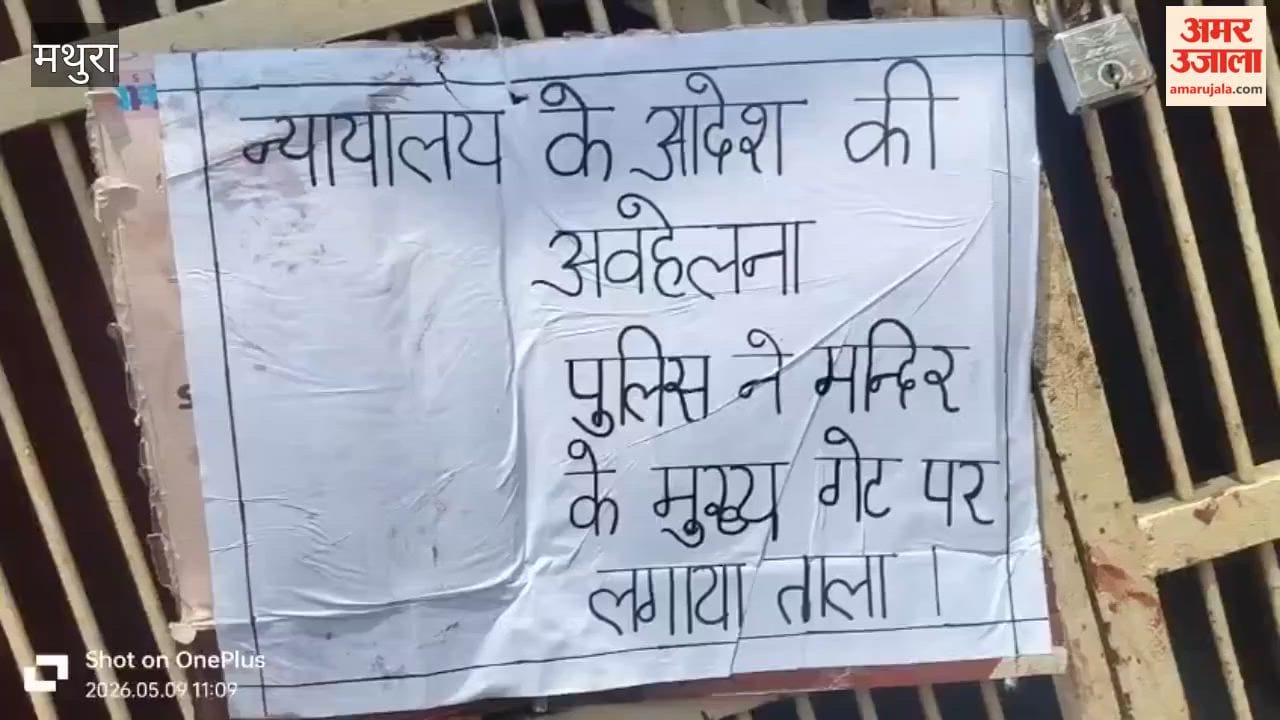 मथुरा
अमर
उजाला
amarujala.com
न्यायालय के आदेश की
अवहेलना
पुलिस ने मन्दिर
के मुख्य गेट पर
लगाया ताला।
Shot on OnePlus
2026.05.09 11:09